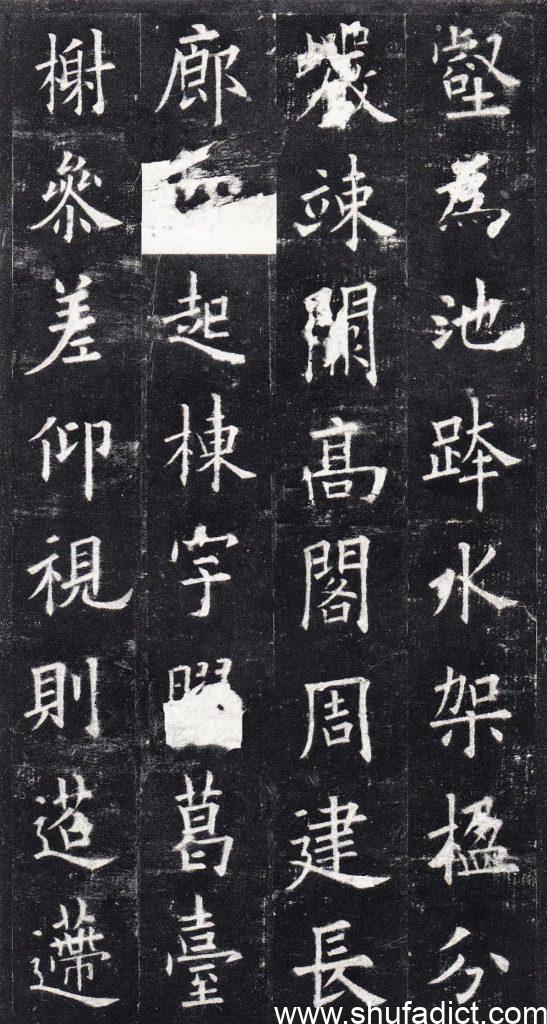 壑為池跨水架楹分
巖竦闕高閣周建長
廊起棟宇葛臺
榭參差仰視則迢遰
www.shufadict.com